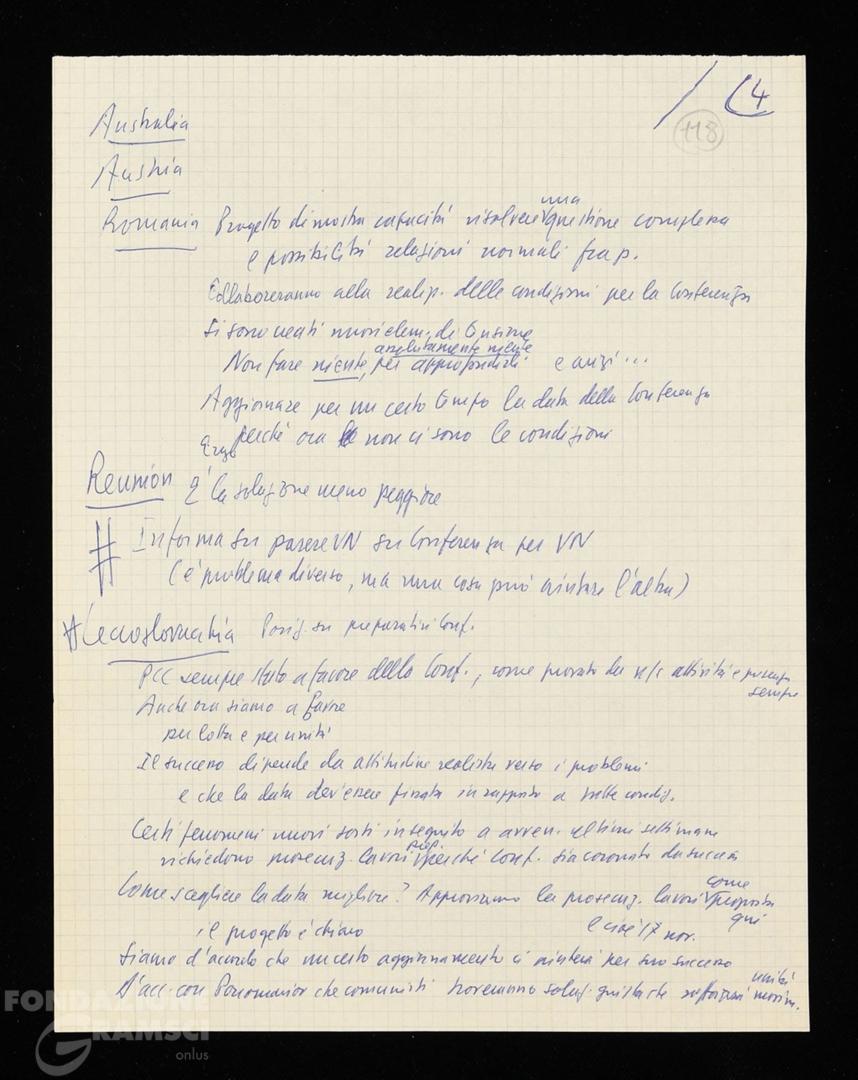 4
118
Australia
Austria
Romania Progetto dimostra capacità risolvere una questione complessa
e possibilità relazioni normali fra p.
Collaboreranno alla realiz. delle condizioni per la Conferenza
Si sono creati nuovi elem. di tensione
Non fare niente, assolutamente niente per approfondirli e anzi...
Aggiornare per un certo tempo la data della Conferenza
perché ora non ci sono le condizioni
Reunión È la soluzione meno peggiore
# Informa su parere VN su Conferenza per VN
(è problema diverso, ma una cosa può aiutare l'altra)
# Cecoslovacchia Posiz. su preparativi Conf.
PCC sempre stato a favore della Conf., come provato da attività e presenza
sempre
Anche ora siamo a favore
per lotta e per unità
Il successo dipende da attitudine realista verso i problemi
e che la data dev'essere fissata in rapporto a condiz.
Certi fenomeni nuovi sorti in seguito a avven. ultimi settimane
richiedono prosecuz. lavori perché Conf. sia coronata da successo
Come scegliere la data migliore? Approviamo la prosecuz. lavori come proposta
qui
il progetto è chiaro e cioè 17 nov.
Siamo d'accordo che un certo aggiornamento ci aiuterà per suo successo
D'acc. con Ponomariov che comunisti troveranno soluz. giusta che rafforzerà unità movim.
FONDAZIONE
GRAMSCI
onlus